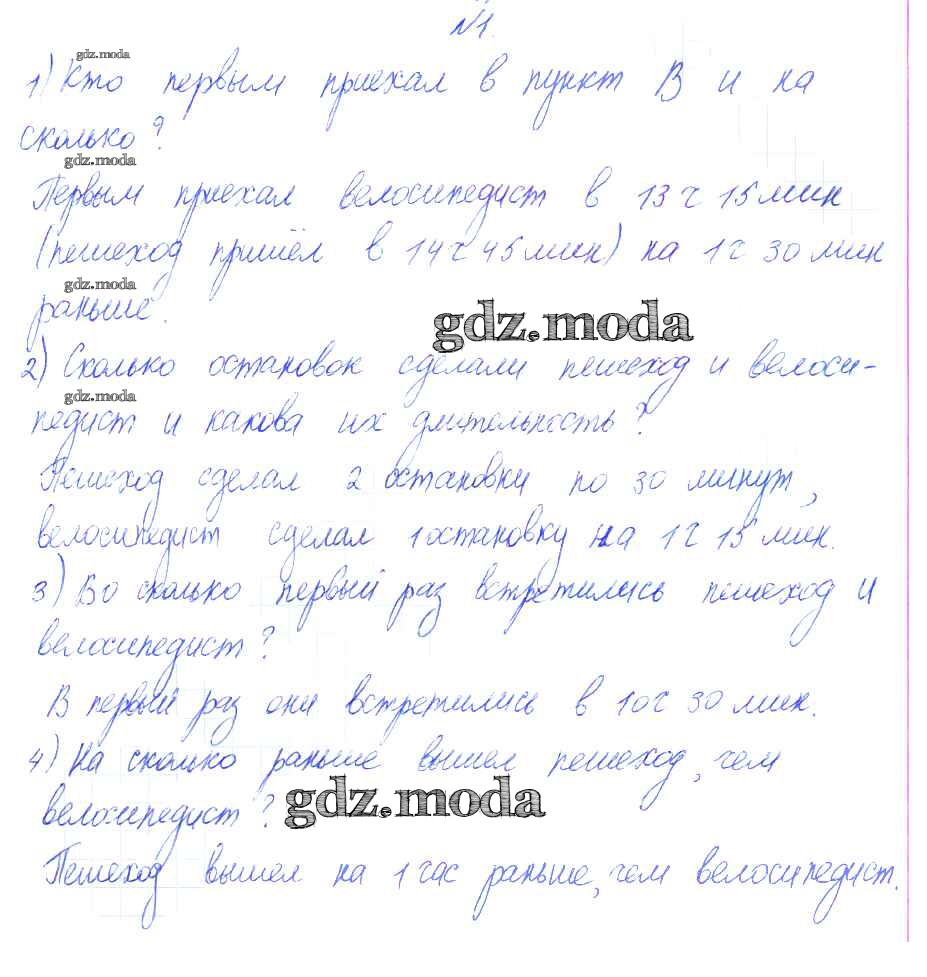 №1.
gdz.moda
1) Кто первым приехал в пункт В и на
сколько?
gdz.moda
Первым приехал велосипедист в 13 ч 15 мин
(пешеход пришёл в 14 ч 45 мин) на 1 ч 30 мин
gdz.moda
раньше.
gdz.moda
2) Сколько остановок сделали пешеход и велоси-
gdz.moda
педист и какова их длительность?
Пешеход сделал 2 остановки по 30 минут,
велосипедист сделал 1 остановку на 1 ч 15 мин.
3) Во сколько первый раз встретились пешеход и
велосипедист?
В первый раз они встретились в 10 ч 30 мин.
4) На сколько раньше вышел пешеход, чем
велосипедист?
gdz.moda
Пешеход вышел на 1 час раньше, чем велосипедист.